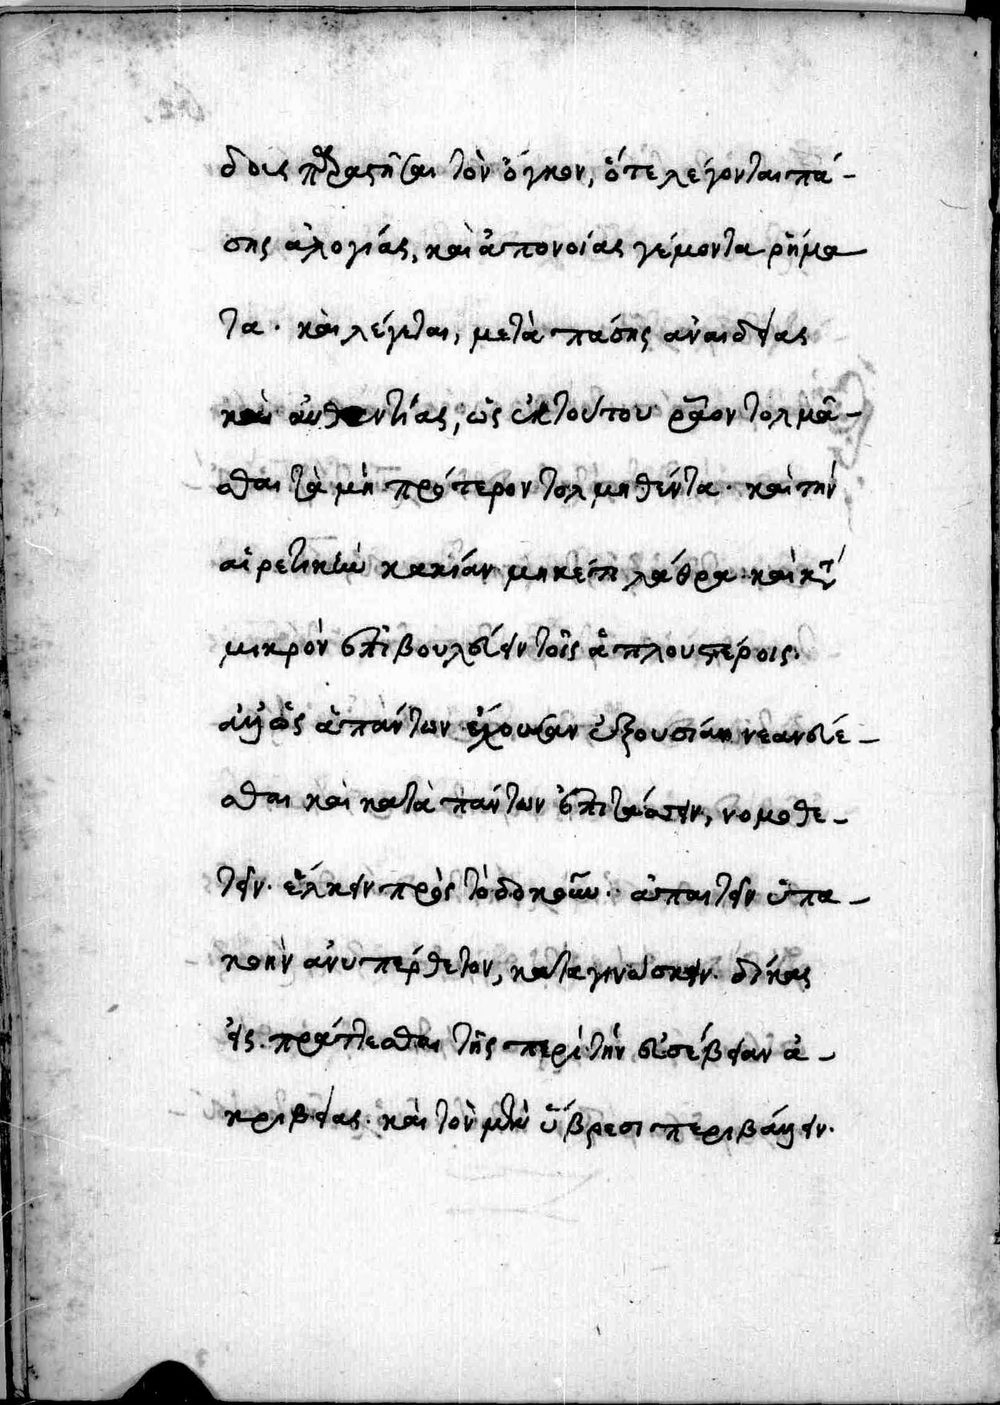 δοις παραστῆσαι τὸν ὄγκον, ὅτε λέγονται πά-
σης ἀλογίας, καὶ ἀπονοίας γέμοντα ῥήμα
τα. καὶ λέγεται, μετὰ πάσης ἀναιδείας
καὶ αὐθεντίας, ὡς ἐκ τούτου ῥᾶον τολμᾶ-
σθαι τὰ μὴ πρότερον τολμηθέντα. καὶ τὴν
αἱρετικὴν κακίαν μηκέτι λάθρα καὶ κατὰ
μικρὸν ἐπιβουλεύειν τοῖς ἁπλουστέροις.
ἀλλ' ὡς ἁπάντων ἔχουσαν ἐξουσίαν νεανιεύε-
σθαι καὶ κατὰ πάντων ἐπιτάσσειν, νομοθε-
τεῖν. ἕλκειν πρὸς τὸ δοκοῦν. ἀπαιτεῖν ὑπα-
κοὴν ἀνυπέρθετον, καταγινώσκειν. δίκας
εἰσπράττεσθαι τῆς περὶ τὴν εὐσέβειαν ἀ-
κριβείας. καὶ τὸν μὲν ὕβρεσι περιβάλλειν.